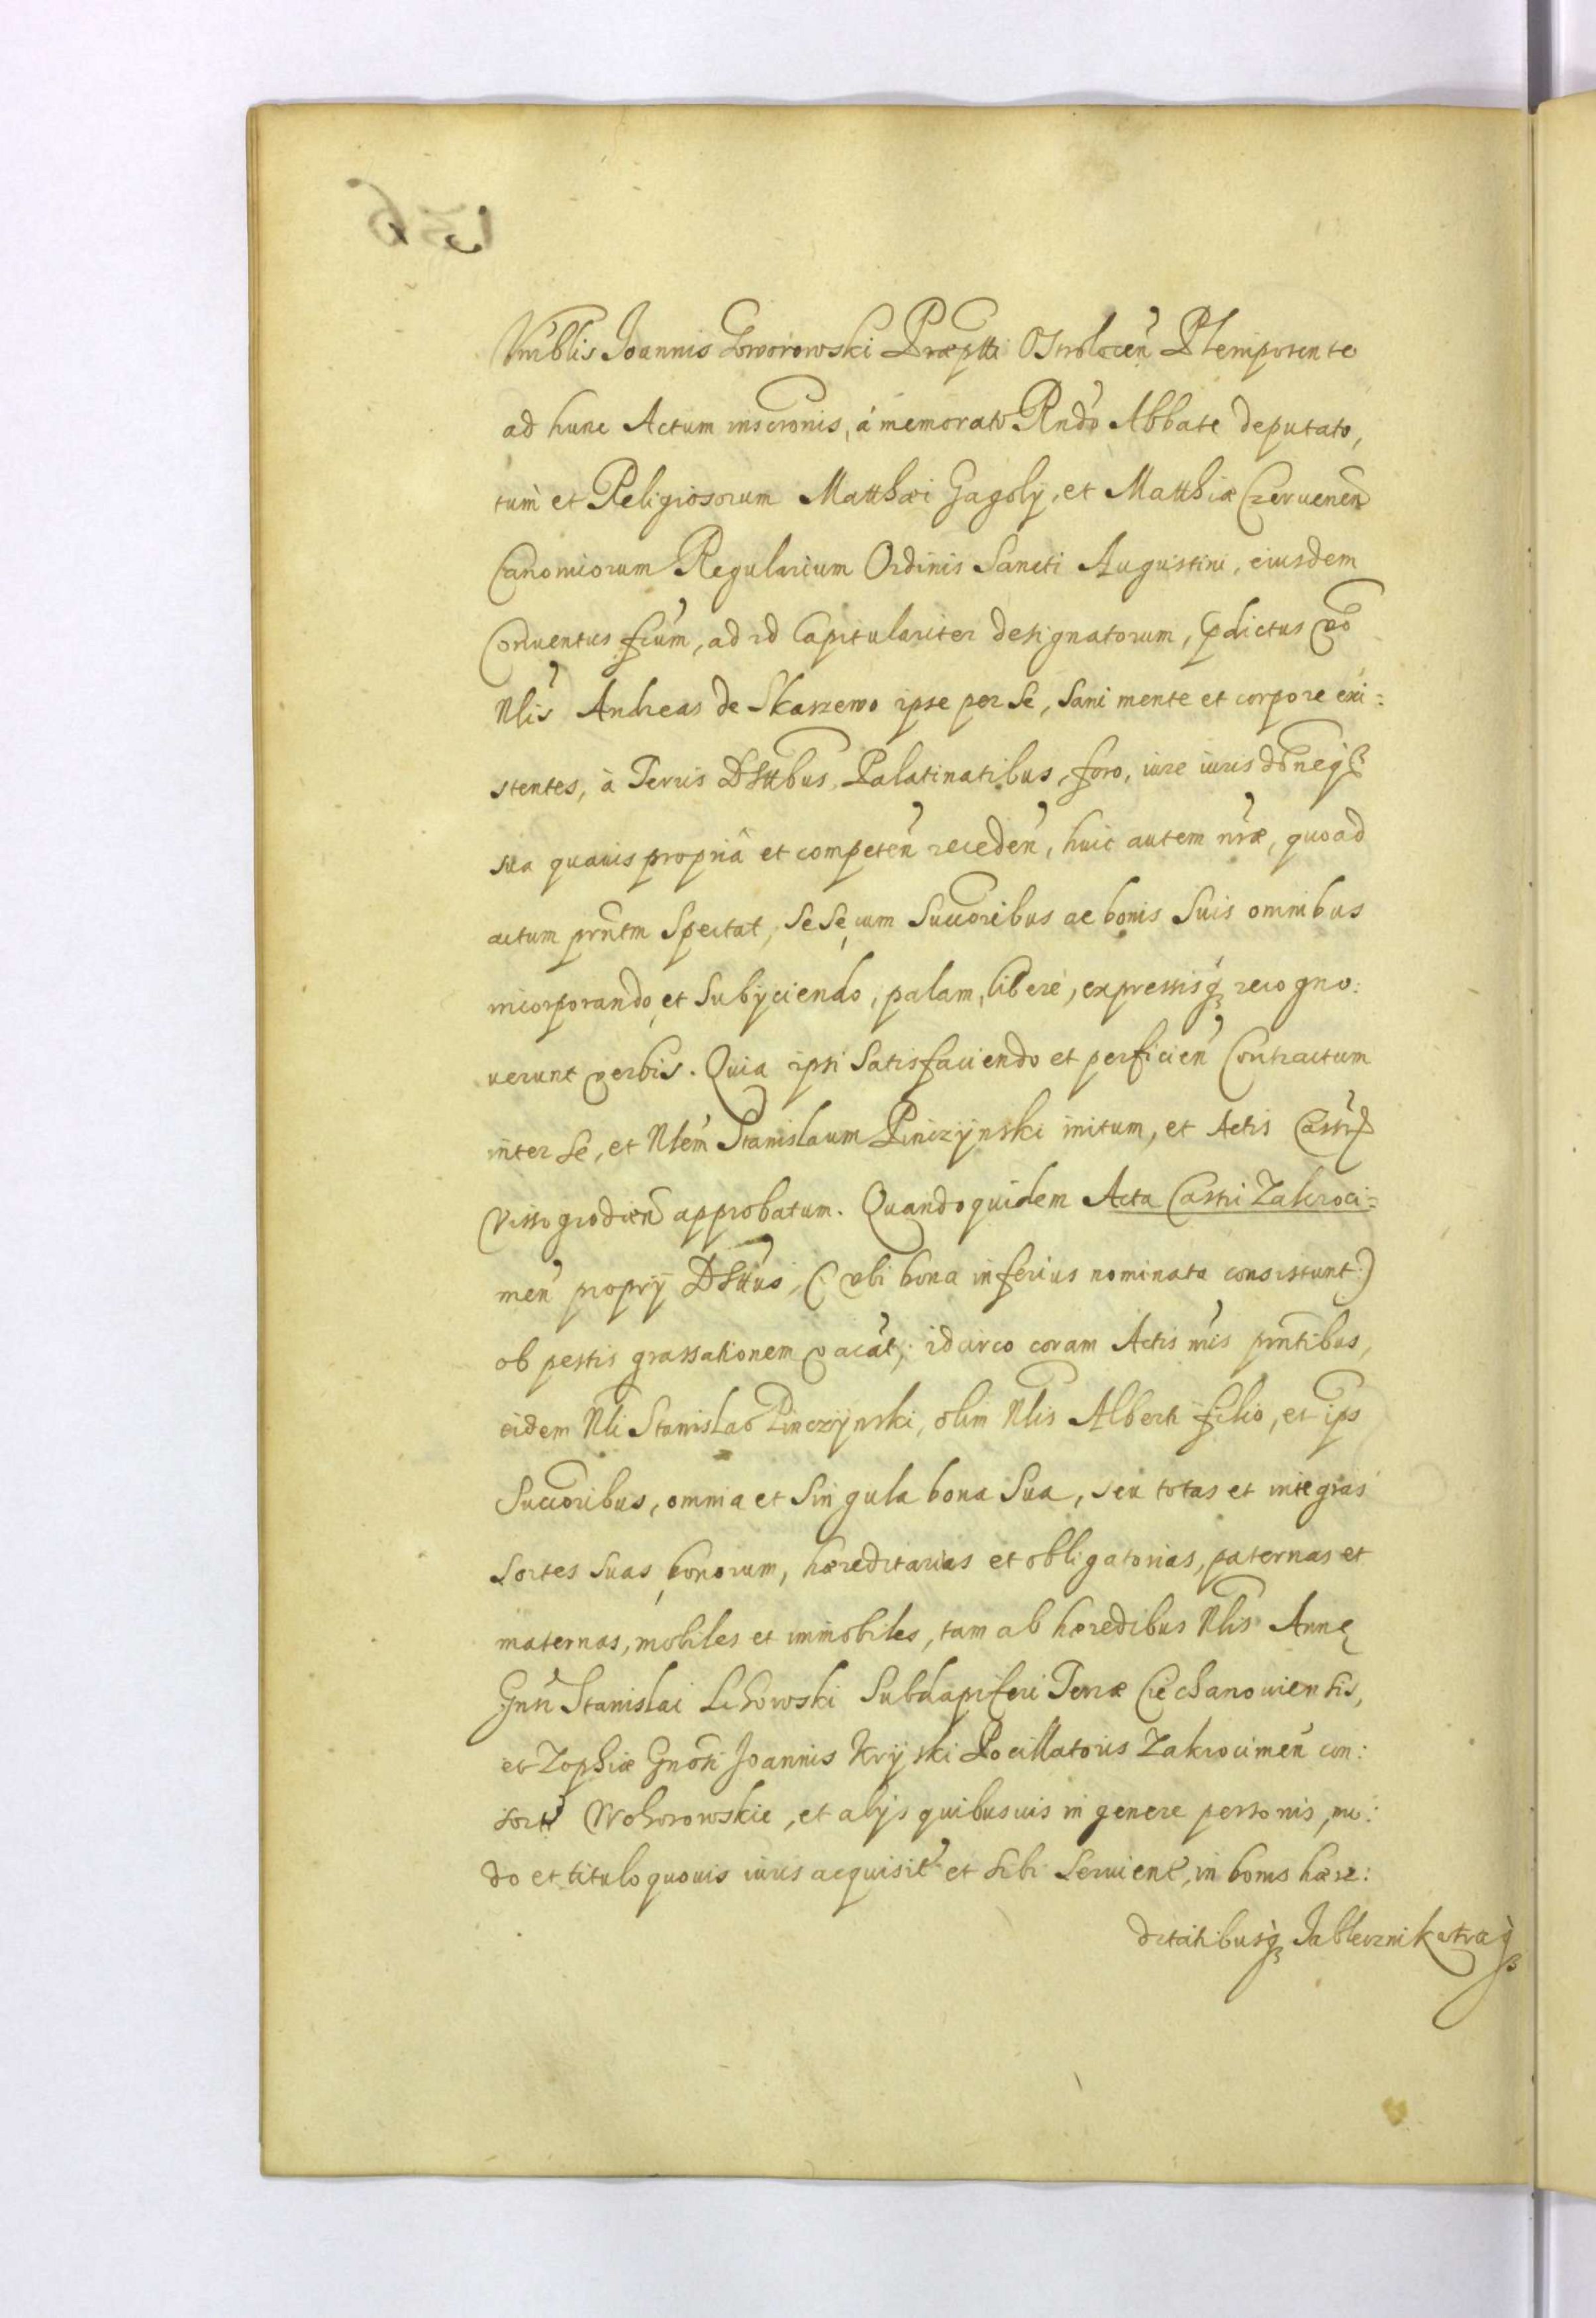 Vnrblis Joannis Goworowski Præptti Ostrolecen̄ Pltenipotente
ad hunc Actum inscronis, á memorato Rndo Abbate deputato,
tum et Religiosorum Matthæi Gagoly, et Matthiæ Czeruenen
Canonicorum Regularium Ordinis Sancti Augustini, eiusdem
Conuentus frum, ad id Capitulariter designatorum, pdictus vō
Nlis Andreas de Skarzewo ipse per Se, Sani mente et corpore exi:
stentes, à Terris Dsttbus, Palatinatibus, foro, iure iurisdōneq̃
sua quauis propriâ et competen̄ receden̄, huic autem nræ, quoad
actum prntm Spectat, Se Se cum Succoribus ac bonis Suis omnibus
incorporando et Subijciendo, palam, liberé, expressisq́ recogno:
uerunt verbis. Quia ipsi Satisfaciendo et perficien̄ Contractum
inter Se, et Nlem Stanislaum Pinczÿnski initum, et Actis Castr
Vissogrodien approbatum. Quandoquidem Acta Castri Zakroci=
men̄ proprÿ Dsttus, (: vbi bona inferius nominata consistunt:)
ob pestis grassationem vacat; idcirco coram Actis nris prntibus,
eidem Nli Stanislao Pinczÿnski, olim Nlis Alberti filio, et ips
Succoribus, omnia et Singula bona Sua, seu totas et integras
Sortes Suas bonorum, hæreditarias et obligatorias, paternas et
maternas, mobiles et immobiles, tam ab hæredibus Nlis Annę
Gnsi Stanislai Lihowski Subdapiferi Terræ Ciechanouiensis,
et Zophiæ Gnosi Joannis Krÿski Pocillatoris Zakrocimen̄ con:
sort Wohorowskie, et alijs quibusuis in genere personis, mo:
do et titulo quouis iuris acquisit et Sibi Seruient, in bonis hære:
ditatibusq́